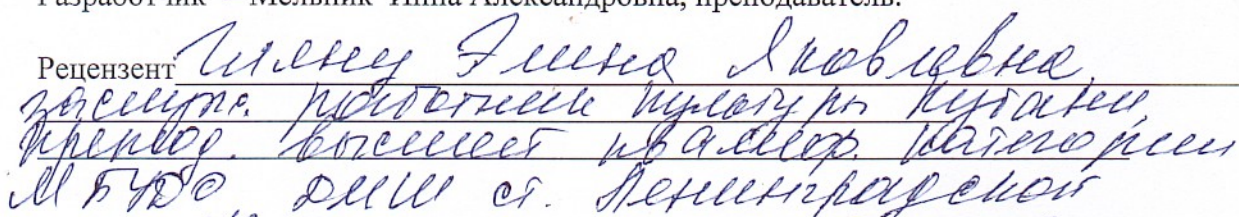 Разработчик – Мельник Инна Александровна, преподаватель.
Рецензент Элина Яковлевна,
заслуж. работник культуры Кубани,
препод. высшей квалиф. категории
МБУДО ДМШ ст. Ленинградской